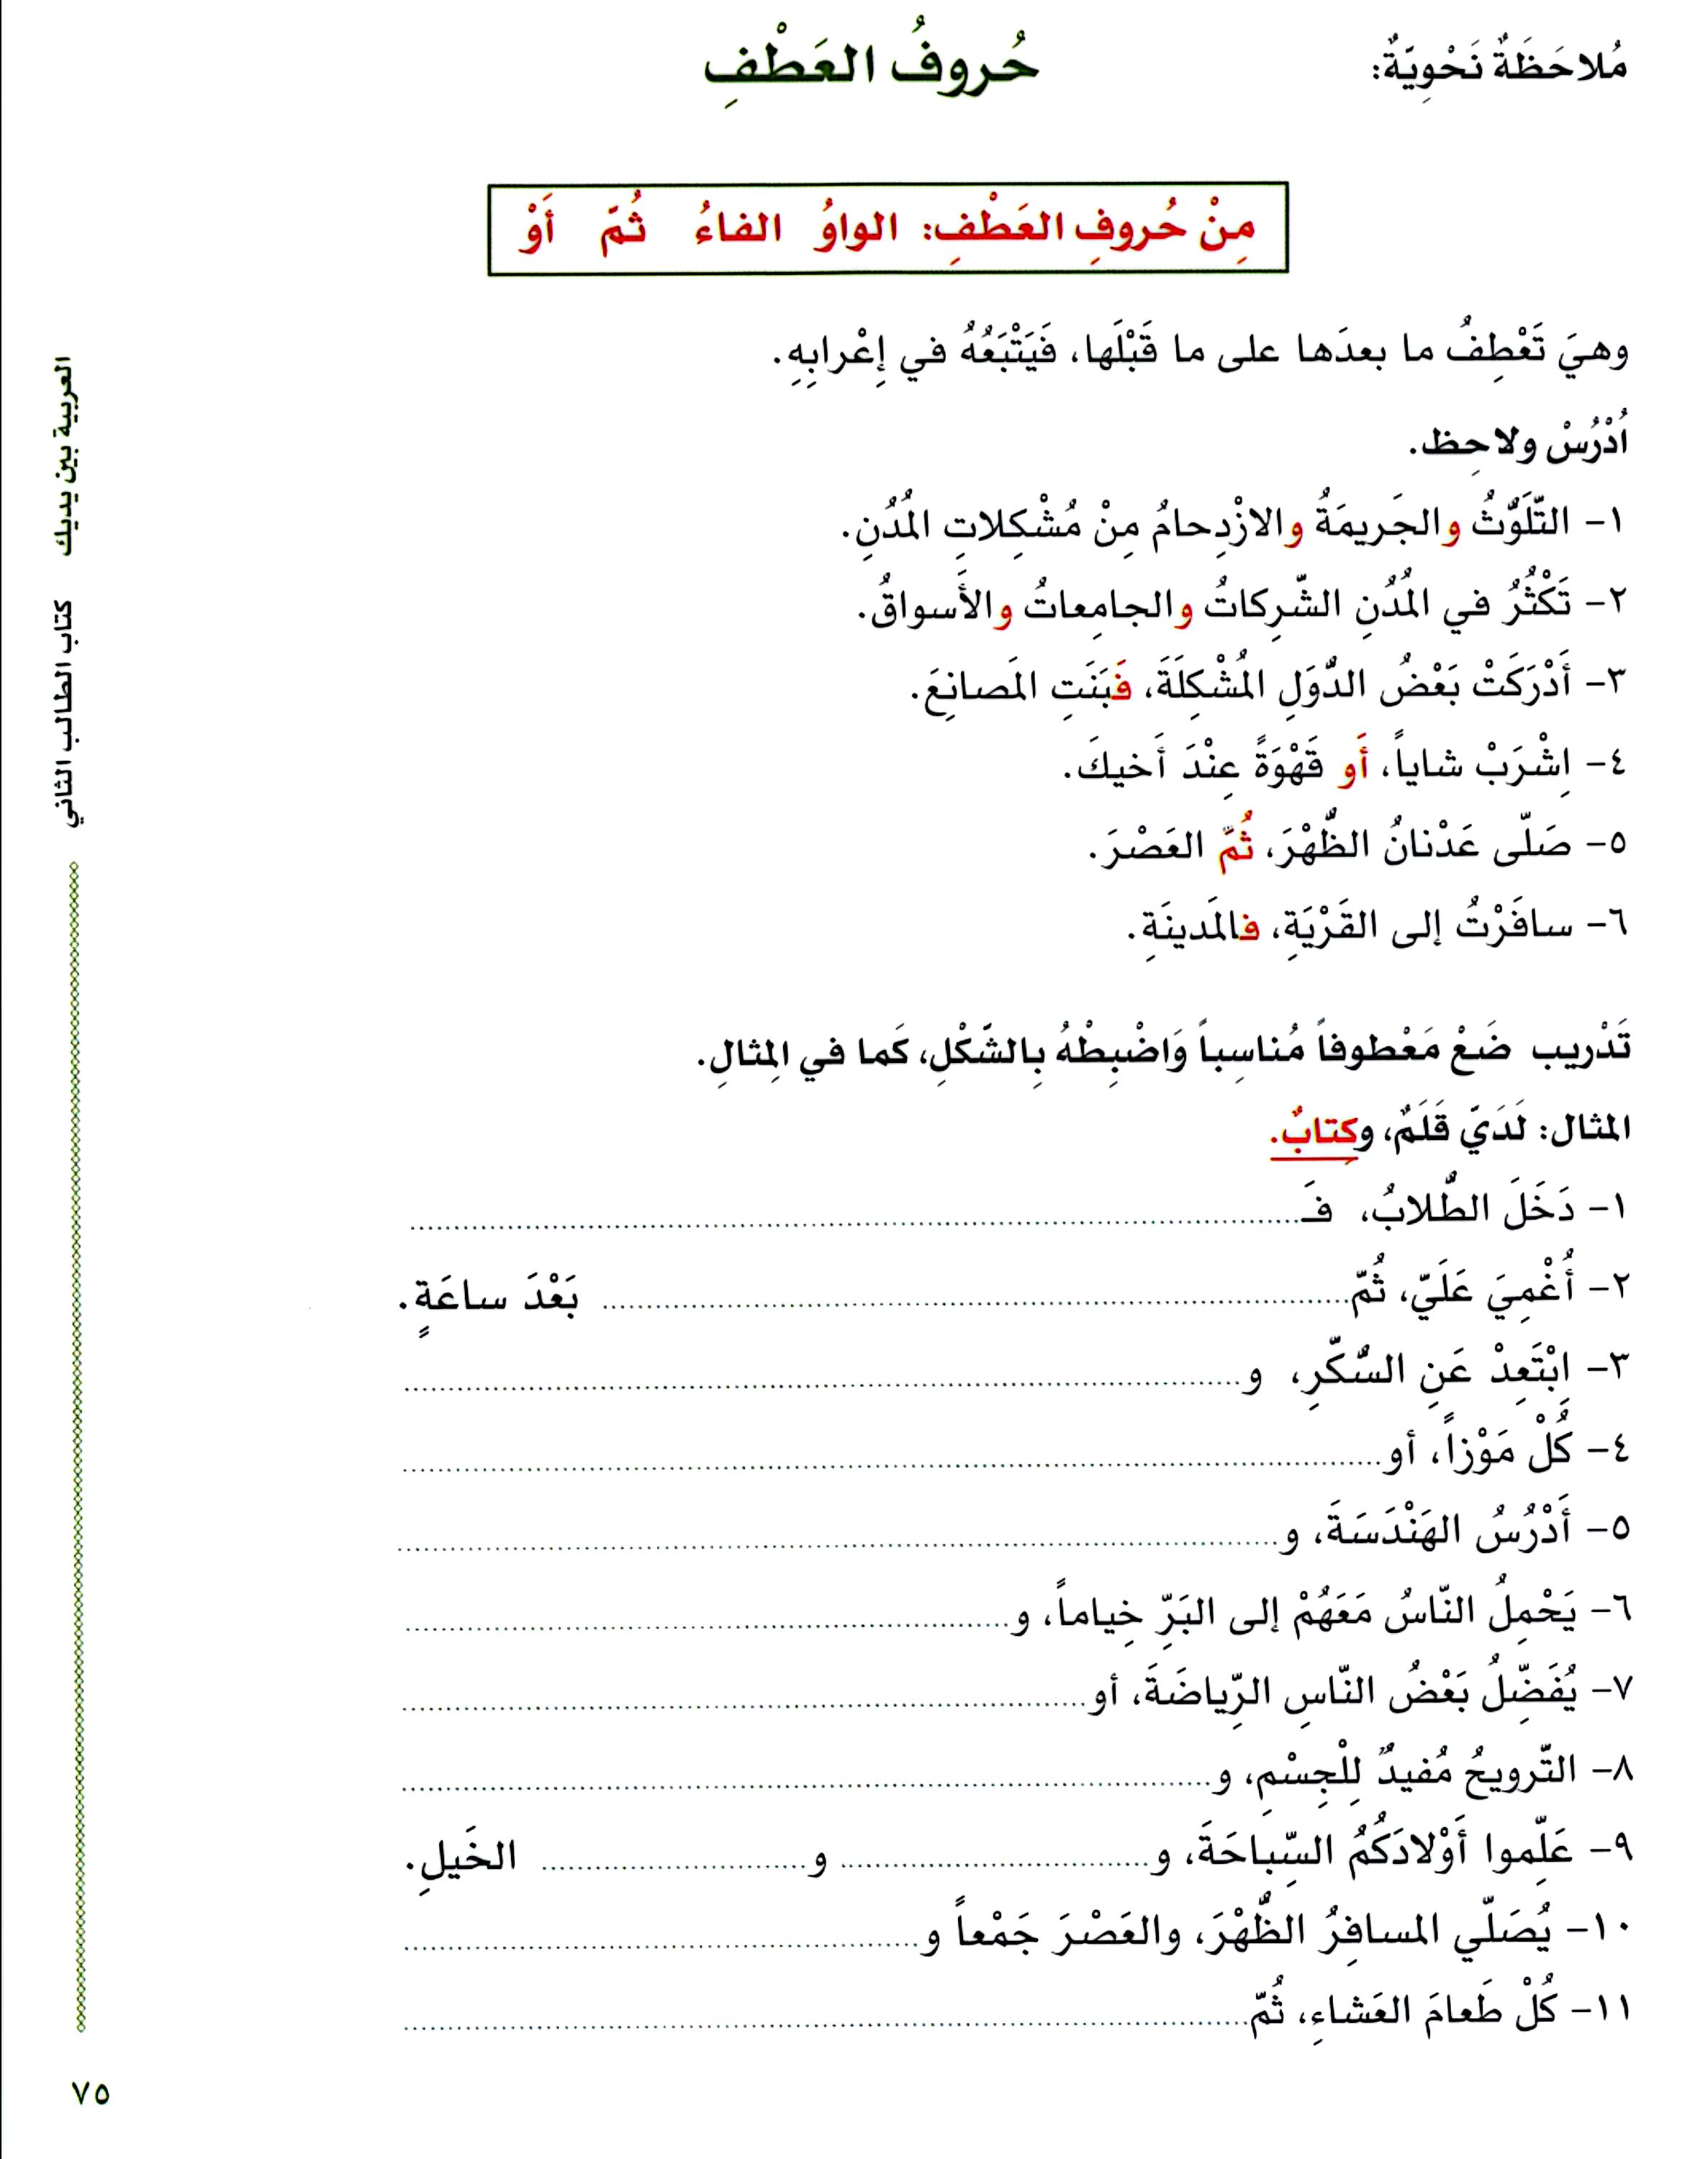 مُلاحَظَةٌ نَحْوِيَّةٌ:
حُروفُ العَطْفِ
مِنْ حُروفِ العَطْفِ: الواوُ الفاءُ ثُمّ أَوْ
وهيَ تَعْطِفُ ما بعدَها على ما قَبْلَها، فَيَتْبَعُهُ في إعْرابِهِ.
اُدْرُسْ ولاحِظ.
١- التّلَوُّثُ والجَريمَةُ والازْدِحامُ مِنْ مُشْكِلاتِ المُدُنِ.
٢- تَكْثُرُ في المُدُنِ الشّرِكاتُ والجامِعاتُ والأَسواقُ.
٣- أَدْرَكَتْ بَعْضُ الدُّوَلِ المُشْكِلَةَ، فَبَنَتِ المَصانِعَ.
٤- اِشْرَبْ شاياً، أَو قَهْوَةً عِنْدَ أَخيكَ.
٥- صَلّى عَدْنانُ الظُّهْرَ، ثُمّ العَصْرَ.
٦- سافَرْتُ إلى القَرْيَةِ، فالمَدينَةِ.
تَدْريب ضَعْ مَعْطوفاً مُناسِباً وَاضْبِطْهُ بِالشّكْلِ، كَما في المِثالِ.
المثال: لَدَيّ قَلَمٌ، وكِتابٌ.
١- دَخَلَ الطُّلابُ، فَـ..........
٢- أُغْمِيَ عَلَيّ، ثُمّ.......... بَعْدَ ساعَةٍ.
٣- اِبْتَعِدْ عَنِ السُّكّرِ، و..........
٤- كُلْ مَوْزاً، أو..........
٥- أَدْرُسُ الهَنْدَسَةَ، و..........
٦- يَحْمِلُ النّاسُ مَعَهُمْ إلى البَرِّ خِياماً، و..........
٧- يُفَضِّلُ بَعْضُ النّاسِ الرِّياضَةَ، أو..........
٨- التّرويحُ مُفيدٌ لِلْجِسْمِ، و..........
٩- عَلِّموا أَوْلادَكُمُ السِّباحَةَ، و.......... و.......... الخَيلِ.
١٠- يُصَلّي المسافِرُ الظُّهْرَ، والعَصْرَ جَمْعاً و..........
١١- كُلْ طَعامَ العَشاءِ، ثُمّ..........
العربية بين يديك كتاب الطالب الثاني
٧٥